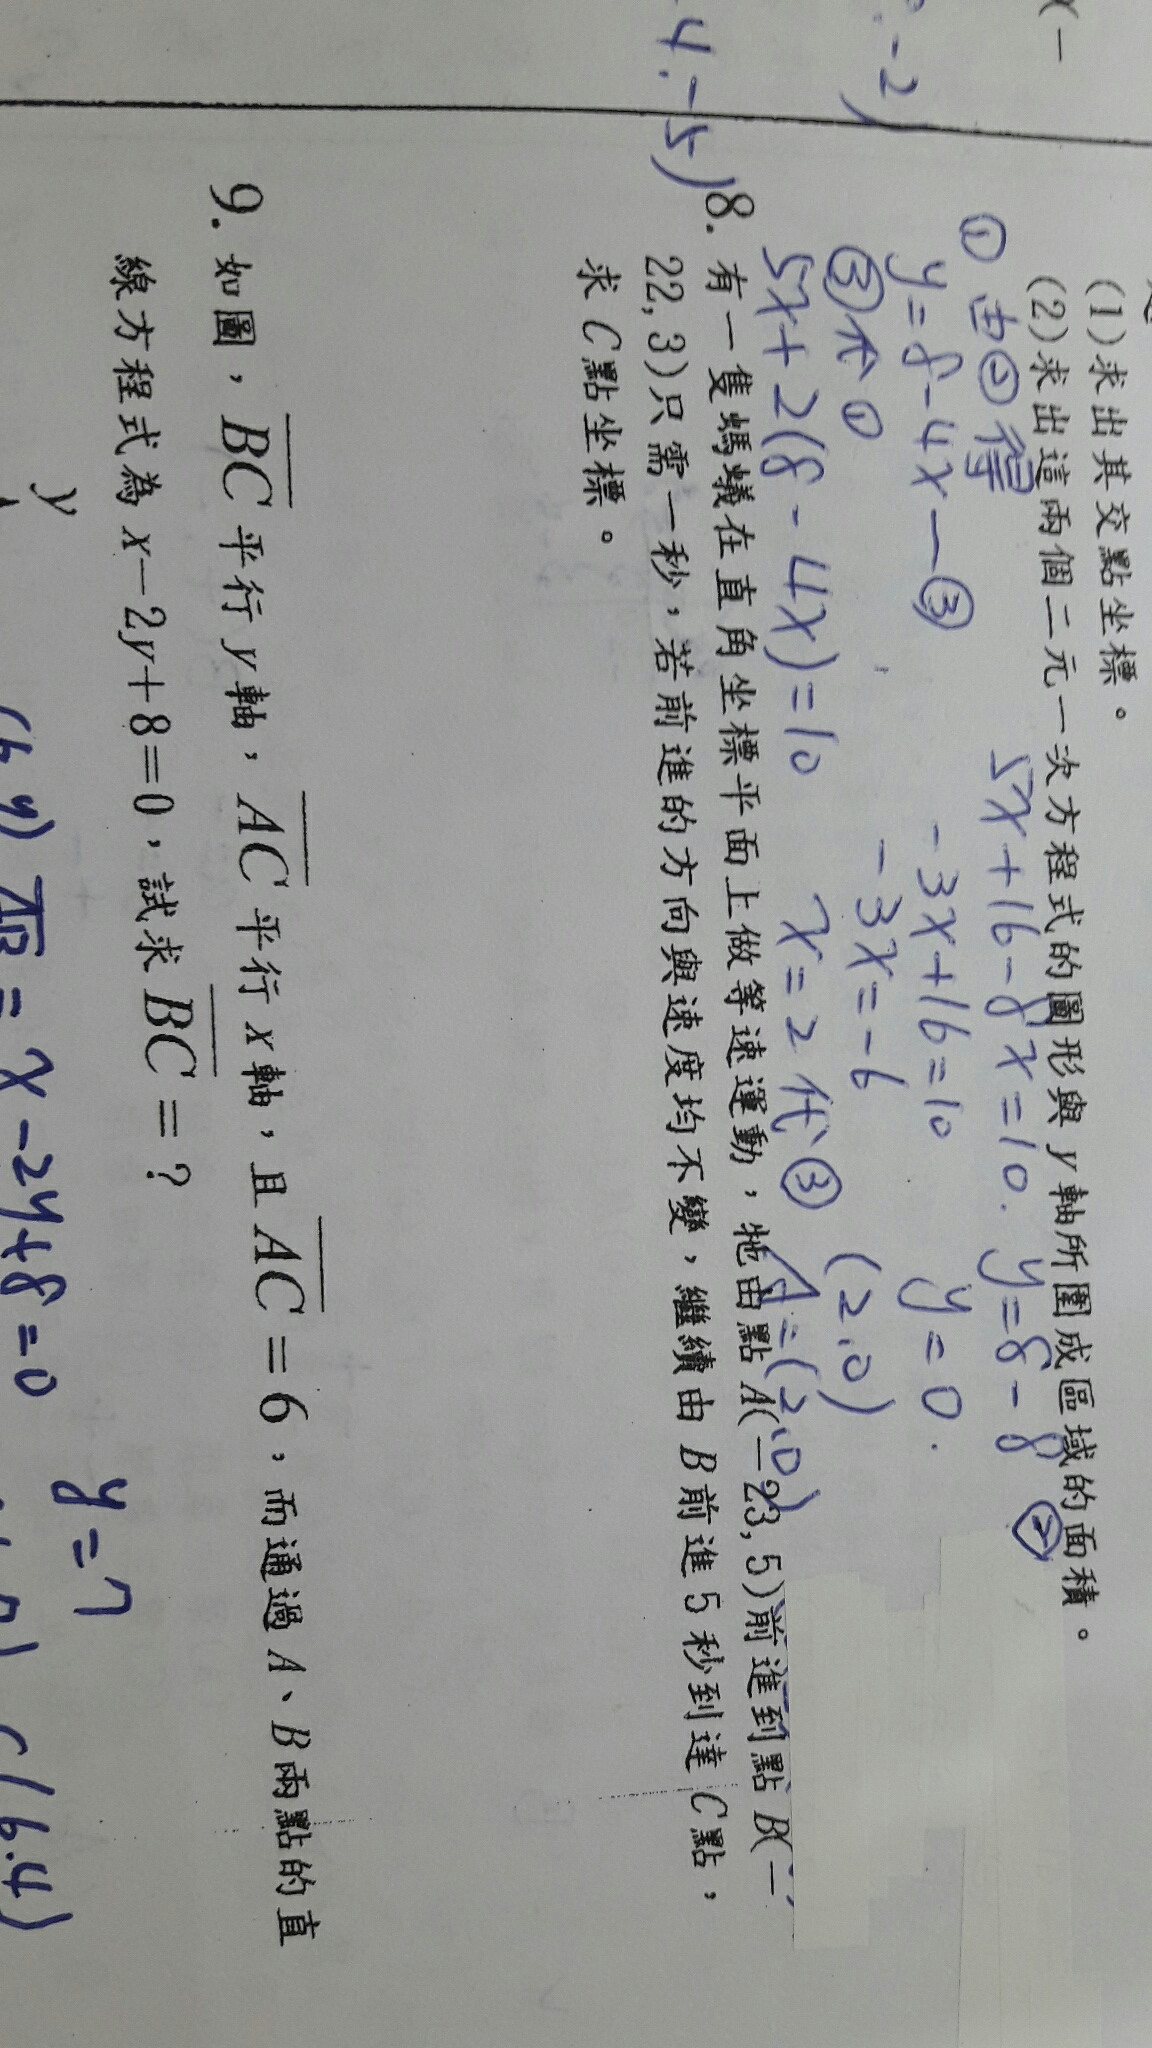 (1)求出其交點坐標。
(2)求出這兩個二元一次方程式的圖形與y軸所圍成區域的面積。
① 由②得
y=8-4x—③
③代①
5x+2(8-4x)=10
5x+16-8x=10.
-3x+16=10
-3x=-6
x=2代③
y=8-8
y=0.
(2,0)
A=(2,0)
②
8. 有一隻螞蟻在直角坐標平面上做等速運動，牠由點A(—23, 5)前進到點B(—
22, 3)只需一秒，若前進的方向與速度均不變，繼續由B前進5秒到達C點，
求C點坐標。
9. 如圖，BC平行y軸，AC平行x軸，且AC=6，而通過A、B兩點的直
線方程式為x—2y+8=0，試求BC=？
y
AB = x-2y+8=0
y=7
-2)
4.-5)
x—